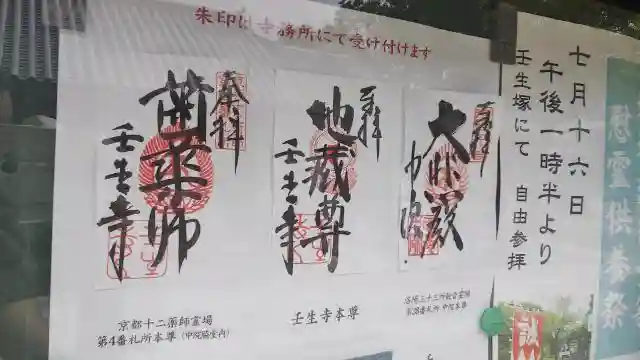 朱印は寺務所にて受け付けます
奉拝
薗薬師
壬生寺
京都十二薬師霊場
第4番札所本尊(中院脇堂内)
奉拝
地蔵尊
壬生寺
壬生寺本尊
奉拝
大悲殿
中院
洛陽三十三所観音霊場
第28番札所 中院本尊
七月十六日
午後一時半より
壬生塚にて 自由参拝
慰霊供養祭